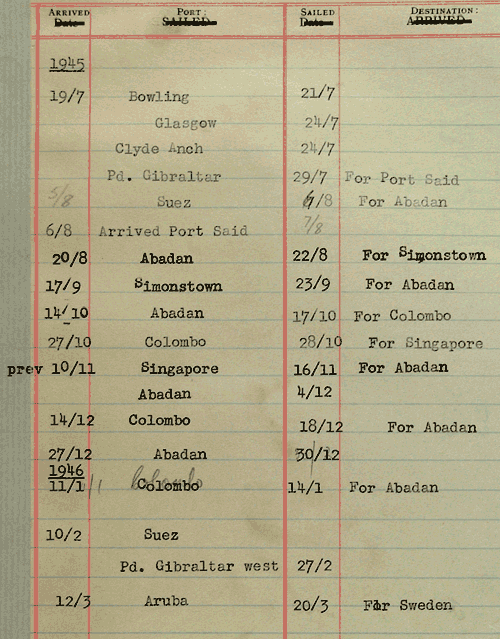 ARRIVED PORT: SAILED DESTINATION:
Date SAILED Date ARRIVED
1945
19/7 Bowling 21/7
Glasgow 24/7
Clyde Anch 24/7
Pd. Gibraltar 29/7 For Port Said
5/8 Suez /8 For Abadan
6/8 Arrived Port Said 7/8
20/8 Abadan 22/8 For Simonstown
17/9 Simonstown 23/9 For Abadan
14/10 Abadan 17/10 For Colombo
27/10 Colombo 28/10 For Singapore
prev 10/11 Singapore 16/11 For Abadan
Abadan 4/12
14/12 Colombo 18/12 For Abadan
27/12 Abadan 30/12
1946
11/1 Colombo 14/1 For Abadan
10/2 Suez
Pd. Gibraltar west 27/2
12/3 Aruba 20/3 For Sweden